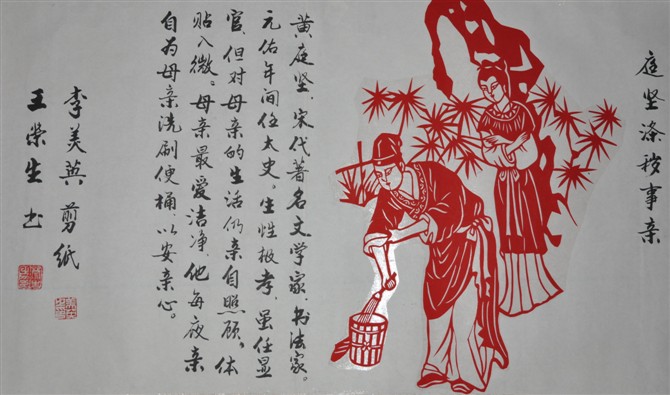 庭坚涤秽事亲
黄庭坚，宋代著名文学家、书法家。
元佑年间任太史。生性极孝，虽任显
官，但对母亲的生活仍亲自照顾。体
贴入微。母亲最爱洁净，他每夜亲
自为母亲洗刷便桶，以安亲心。
李美英 剪纸
王荣生 书